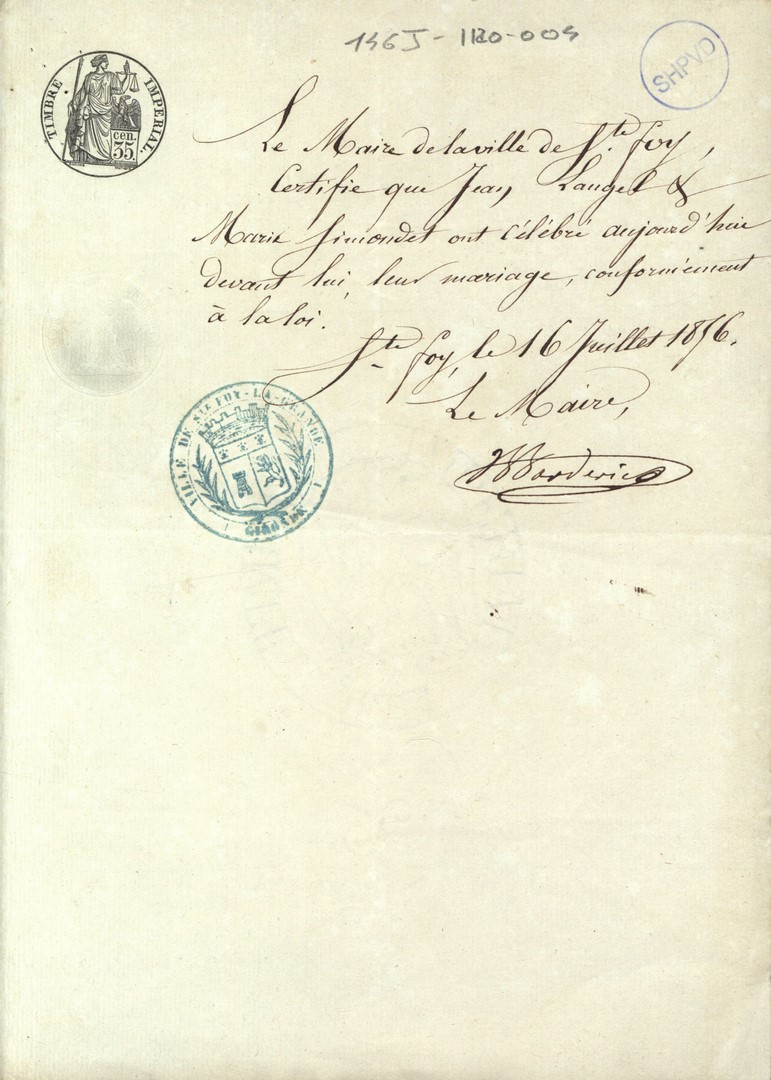 146J-1120-004
SHPVD
TIMBRE IMPERIAL.
cen.
35.
Le Maire de la ville de Ste. foy,
Certifie que Jean Langel &
Marie Simondet ont célébré aujourd'hui
devant lui, leur mariage, conformément
à la loi.
Ste foy, le 16 Juillet 1856.
Le Maire,
VILLE DE STE FOY-LA-GRANDE
GIRONDE